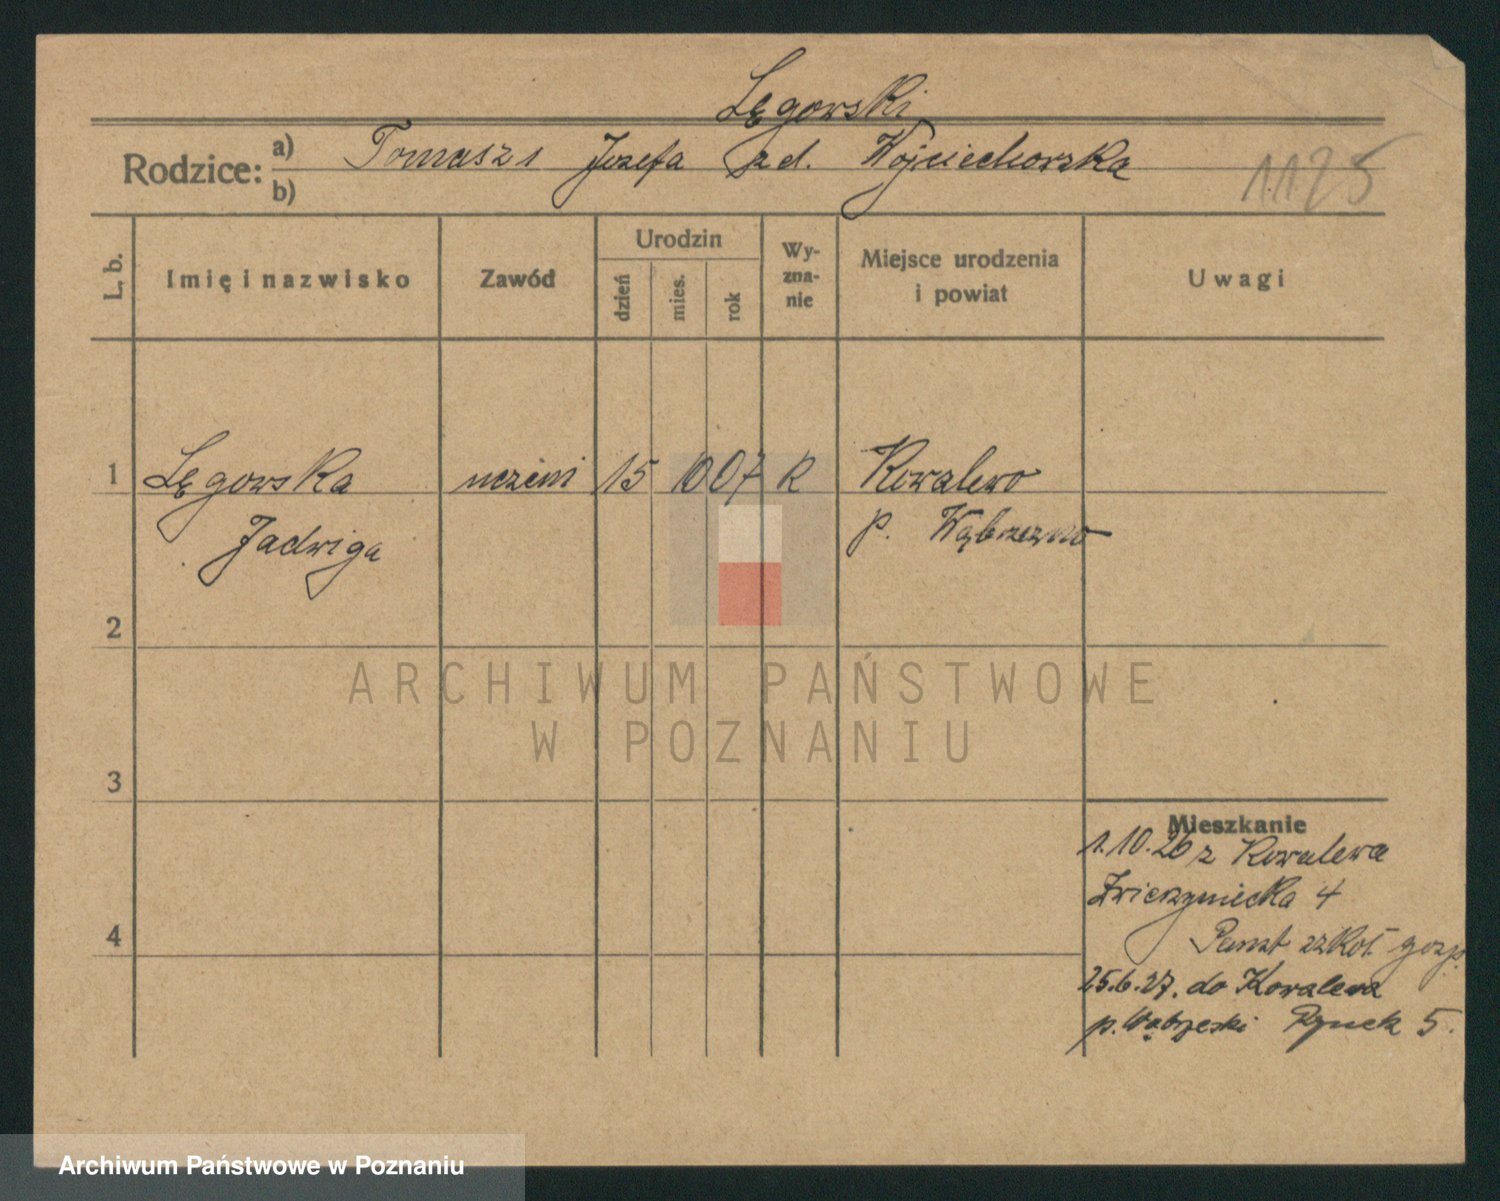 Łęgorski
Rodzice: a) Tomasz i Józefa z d. Wojciechowska
b)
1125
L. b.
Imię i nazwisko
Zawód
Urodzin
dzień
mies.
rok
Wy-
zna-
nie
Miejsce urodzenia
i powiat
Uwagi
1 Łęgowska uczeni 15 10 07 R Kowalewo
Jadwiga p. Wąbrzeźno
2
3
4
Mieszkanie
1.10.26 z Kowalewa
Zwierzyniecka 4
Państ szkoł. gosp.
25.6.27. do Kowalewa
p. Wąbrzeski Rynek 5.
ARCHIWUM PAŃSTWOWE
W POZNANIU
Archiwum Państwowe w Poznaniu